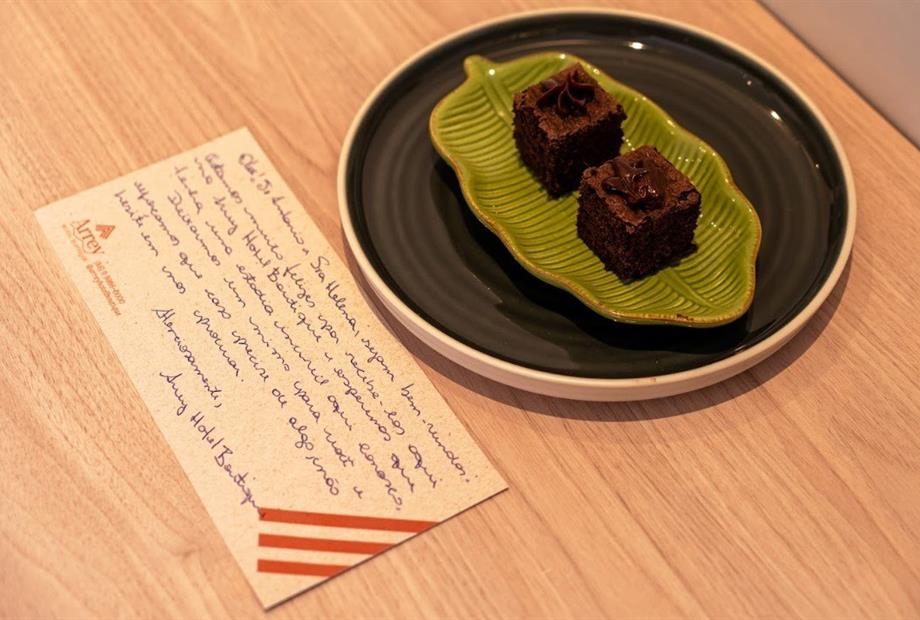 Arrey
Olá! Sr Antonio e Sra Helena, sejam bem-vindos!
Estamos muito felizes por recebe-los aqui
no Arrey Hotel Boutique e esperamos que
tenha uma estadia incrível aqui conosco.
Deixamos um mimo para você e
esperamos que caso precise de algo, não
hesite em nos procurar.
Atenciosamente,
Arrey Hotel Boutique